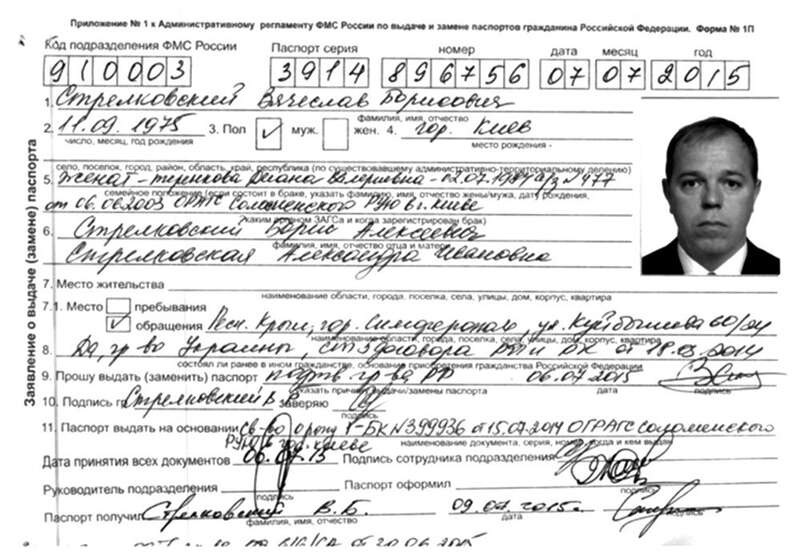 Приложение № 1 к Административному регламенту ФМС России по выдаче и замене паспортов гражданина Российской Федерации. Форма № 1П
Код подразделения ФМС России Паспорт серия номер дата месяц год
910003 3914 896756 07 07 2015
1. Стрелковский Вячеслав Борисович
фамилия, имя, отчество
2. 11.09.1975 3. Пол муж. жен. 4. гор. Киев
число, месяц, год рождения место рождения -
село, поселок, город, район, область, край, республика (по существовавшему административно-территориальному делению)
5. Женат - Валериевна - 12.07.1981 а/з №477
семейное положение (если состоит в браке, указать фамилию, имя, отчество жены/мужа, дату рождения,
от 06.06.2003 ОРАГС Соломенского РУЮ в г. Киеве
каким органом ЗАГСа и когда зарегистрирован брак)
6. Стрелковский Борис Алексеевич
фамилия, имя, отчество отца и матери
Стрелковская Александра Ивановна
7. Место жительства
наименование области, города, поселка, села, улицы, дом, корпус, квартира
7.1. Место пребывания
обращения Респ. Крым, гор. Симферополь, ул. Куйбышева 60/24
наименование области, города, поселка, села, улицы, дом, корпус, квартира
8. Да, гр-во Украины, ст. 5 договора РФ и РК от 18.03.2014
состоял ли ранее в ином гражданстве, основание приобретения гражданства Российской Федерации
9. Прошу выдать (заменить) паспорт гр-ва РФ 06.07.2015
указать причину выдачи/замены паспорта подпись
10. Подпись гр. Стрелковский В. Б. заверяю
подпись
11. Паспорт выдать на основании св-во о рожд. БК №399936 от 15.07.2014 ОГРАГС Соломенского
наименование документа, серия, номер, когда и кем выдан
РУЮ в гор. Киеве
Дата принятия всех документов 06.07.15 Подпись сотрудника подразделения
Руководитель подразделения Паспорт оформил
подпись подпись
Паспорт получил Стрелковский В. Б. 09.07.2015г.
фамилия, имя, отчество дата подпись
Заявление о выдаче (замене) паспорта